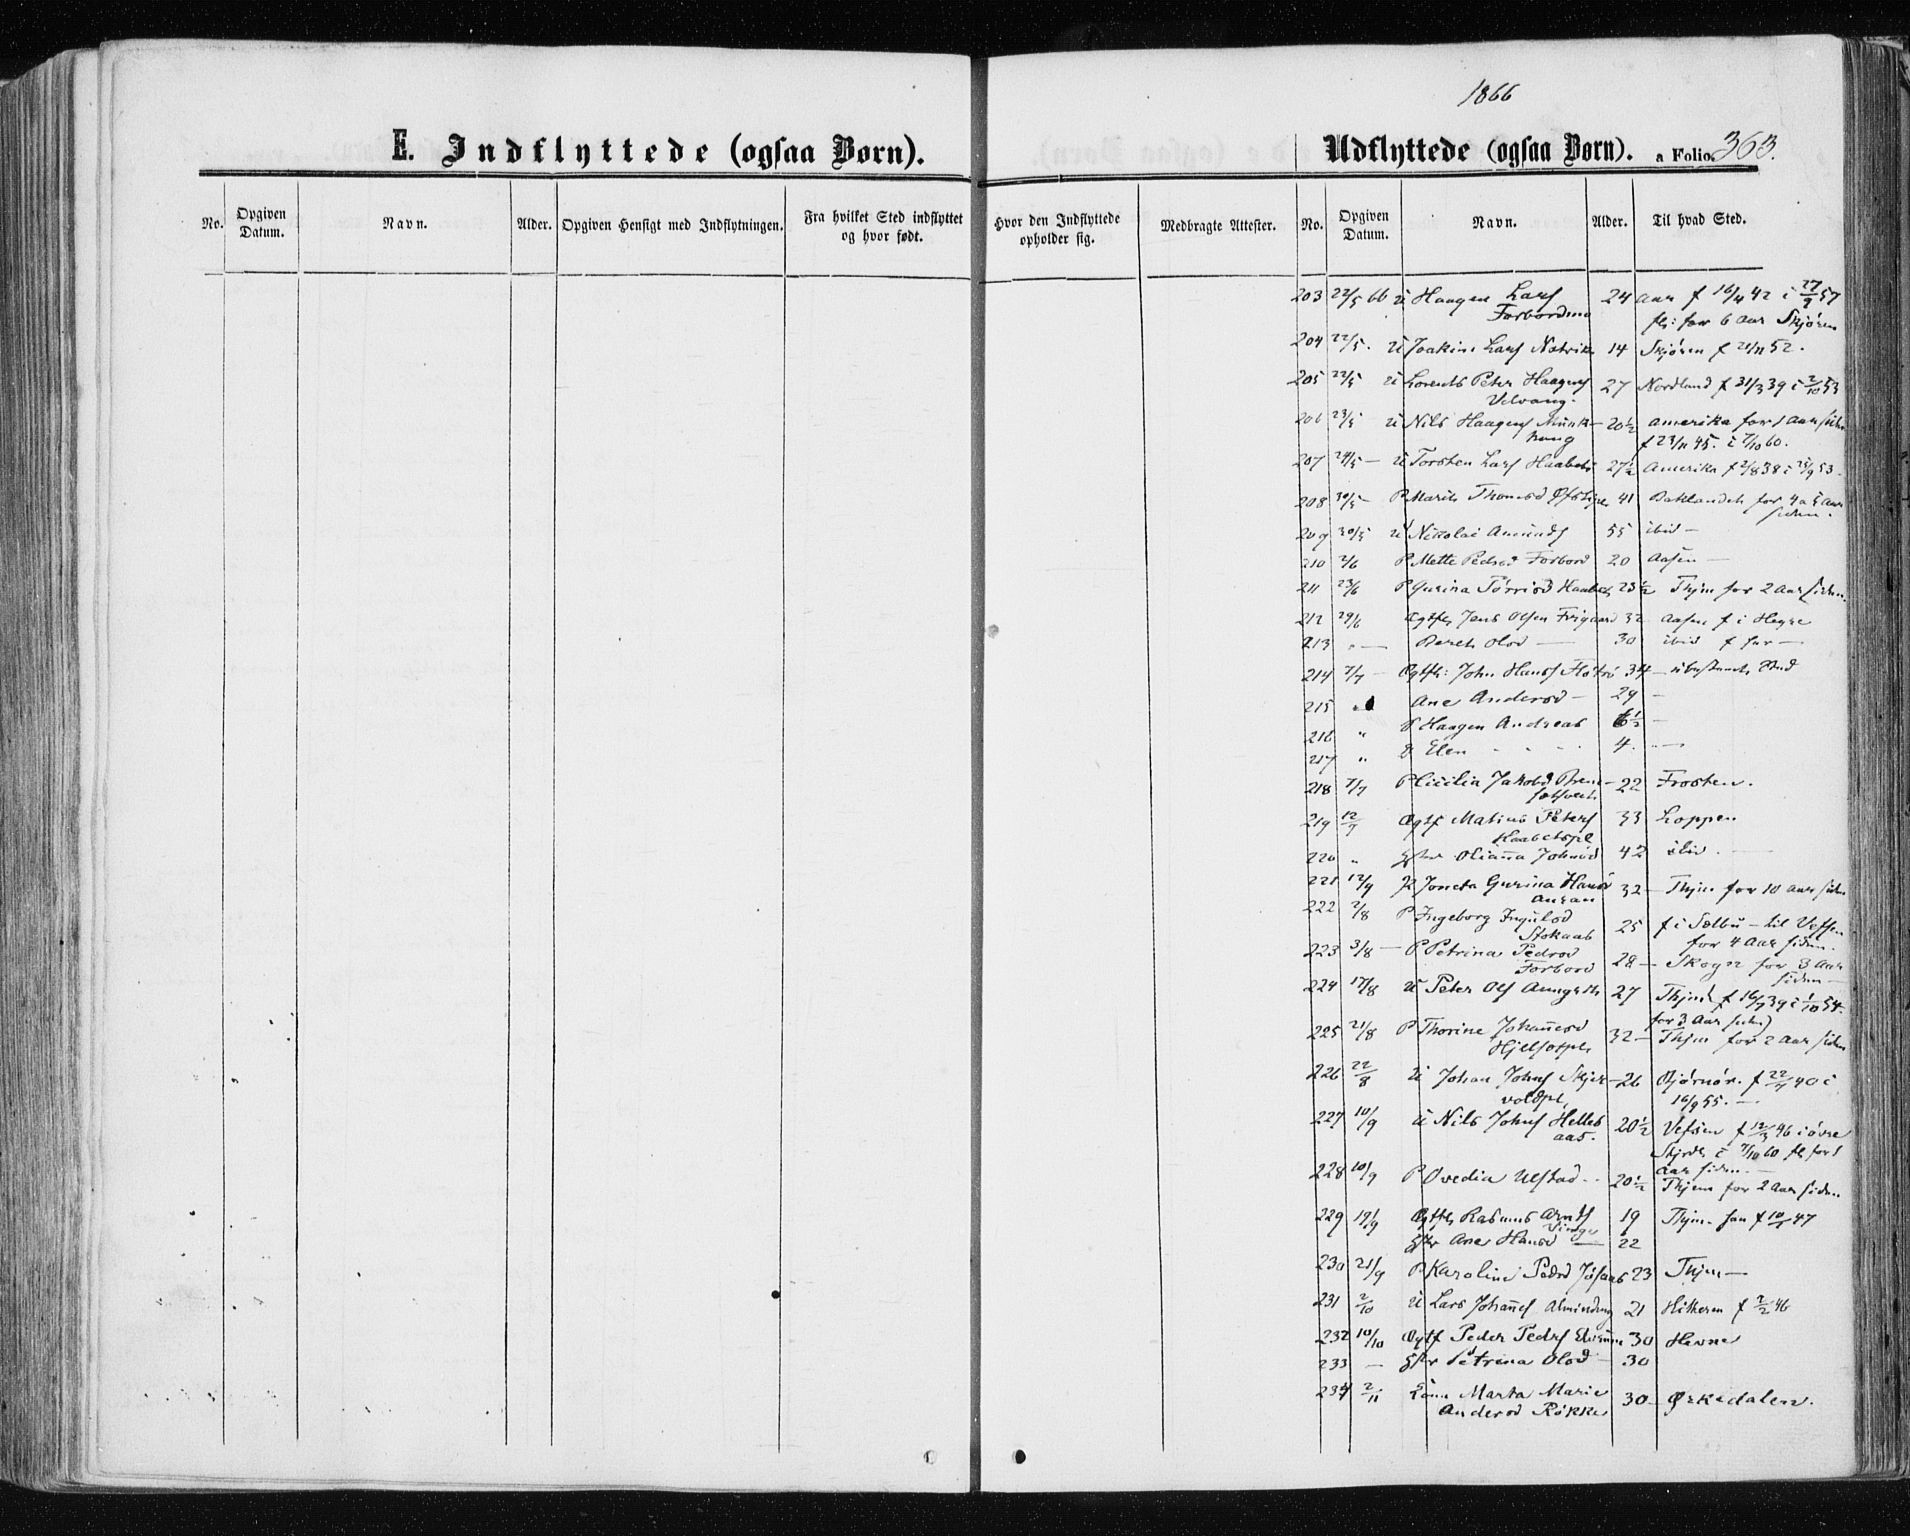 1866
E. Indflyttede (ogsaa Børn).
Udflyttede (ogsaa Børn). a Folio. 363.
No. Opgiven Datum. Navn. Alder. Opgiven Hensigt med Indflytningen. Fra hvilket Sted indflyttet og hvor født. Hvor den Indflyttede opholder sig. Medbragte Attester. No. Opgiven Datum. Navn. Alder. Til hvad Sted.
203 22/5 66 u Haagen Lars 24 Aar f 16/4 42 i 27/9 57
Forbordmo fl: for 6 Aar Skjørn
204 22/5. u Joakim Lars 14 Skjørn f 52.
205 22/5 u Lorents Peter Haagens 27 Nordland f 31/3 39 i 2/10 53
Velvang.
206 23/5 u Nils Haagens Munk- 20½ Amerika for 1 Aar siden
haug f 23/11 45. i 7/10 60.
207 24/5 — u Torsten Lars Haabets 27½ Amerika f 2/8 38 i 25/9 53.
208 30/5 — P Marit Thomasd 41 Baklandet for 4 a 5 Aar
siden.
209 30/5 u Nikolai Amunds 55 ibid —
210 2/6 P Mette Pedersd Forbord 20 Aasen —
211 23/6 P Gurina Haabets 23½ Thjm for 2 Aar siden.
212 29/6 Egtfl Jens Olsen Frigaard 32 Aasen f i Hegre
213 " — Beret Olsd — 30 ibid f —
214 7/7 — Egtfl: John Hans 34 — ubestemt Sted
215 " Ane Andersd — 29 —
216 " Haagen Andreas 6½ —
217 " & Elen " " " 4. —
218 7/7 P Cicilia Jakobd 22 Frosten.
219 12/7 Egtf Matias Peters 33 Loppen
Haabetspl
220 " Olianna Johnsd 42 ibid. —
221 12/7 P Joneta Gurina Hansd 32 — Thjm for 10 Aar siden
Auran
222 2/8 P Ingeborg 25 f i Selbu — til Vefsen
Stokaas for 4 Aar siden.
223 3/8 — P Petrina Pedersd 28 — Skogn for 3 Aar
Forbord siden —
224 17/8 u Peter Ols 27 Thjm f 16/7 39 i 1/10 54.
for 3 Aar siden)
225 21/8 P Thorine Johannesd 32 — Thjm for 2 Aar siden
226 22/8 u Johan Johns Skjer- 26 Bjørnør. f 40 i
voldpl, 16/9 55. —
227 10/9 u Nils Johns Helles 20½ Vefsen f 12/3 46 i øvre
aas. i 7/10 60 fl for 1
Aar siden. —
228 10/9 P Ovedia Ulstad. . 20½ Thjem for 2 Aar siden
229 19/9 Egtfl Rasmus Arnts 19 Thjm. han f 47
Ane Hansd — 22
230 21/9 P Karoline Pedersd 23 Thjem —
231 2/10 u Lars Johannes Alminding 21 Hitteren f 2/2 46
232 10/10 Egtf Peder Peders 30 Hevne
233 — Petrina Olsd — 30
234 2/11 Marta Marie 30 — Ørkedalen.
Andersd Røkke